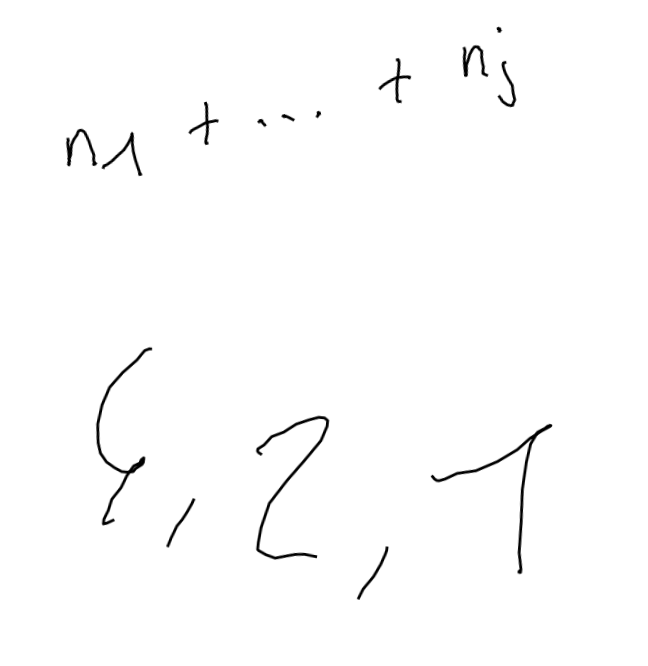 n1 + ... + nj
, 2, 1